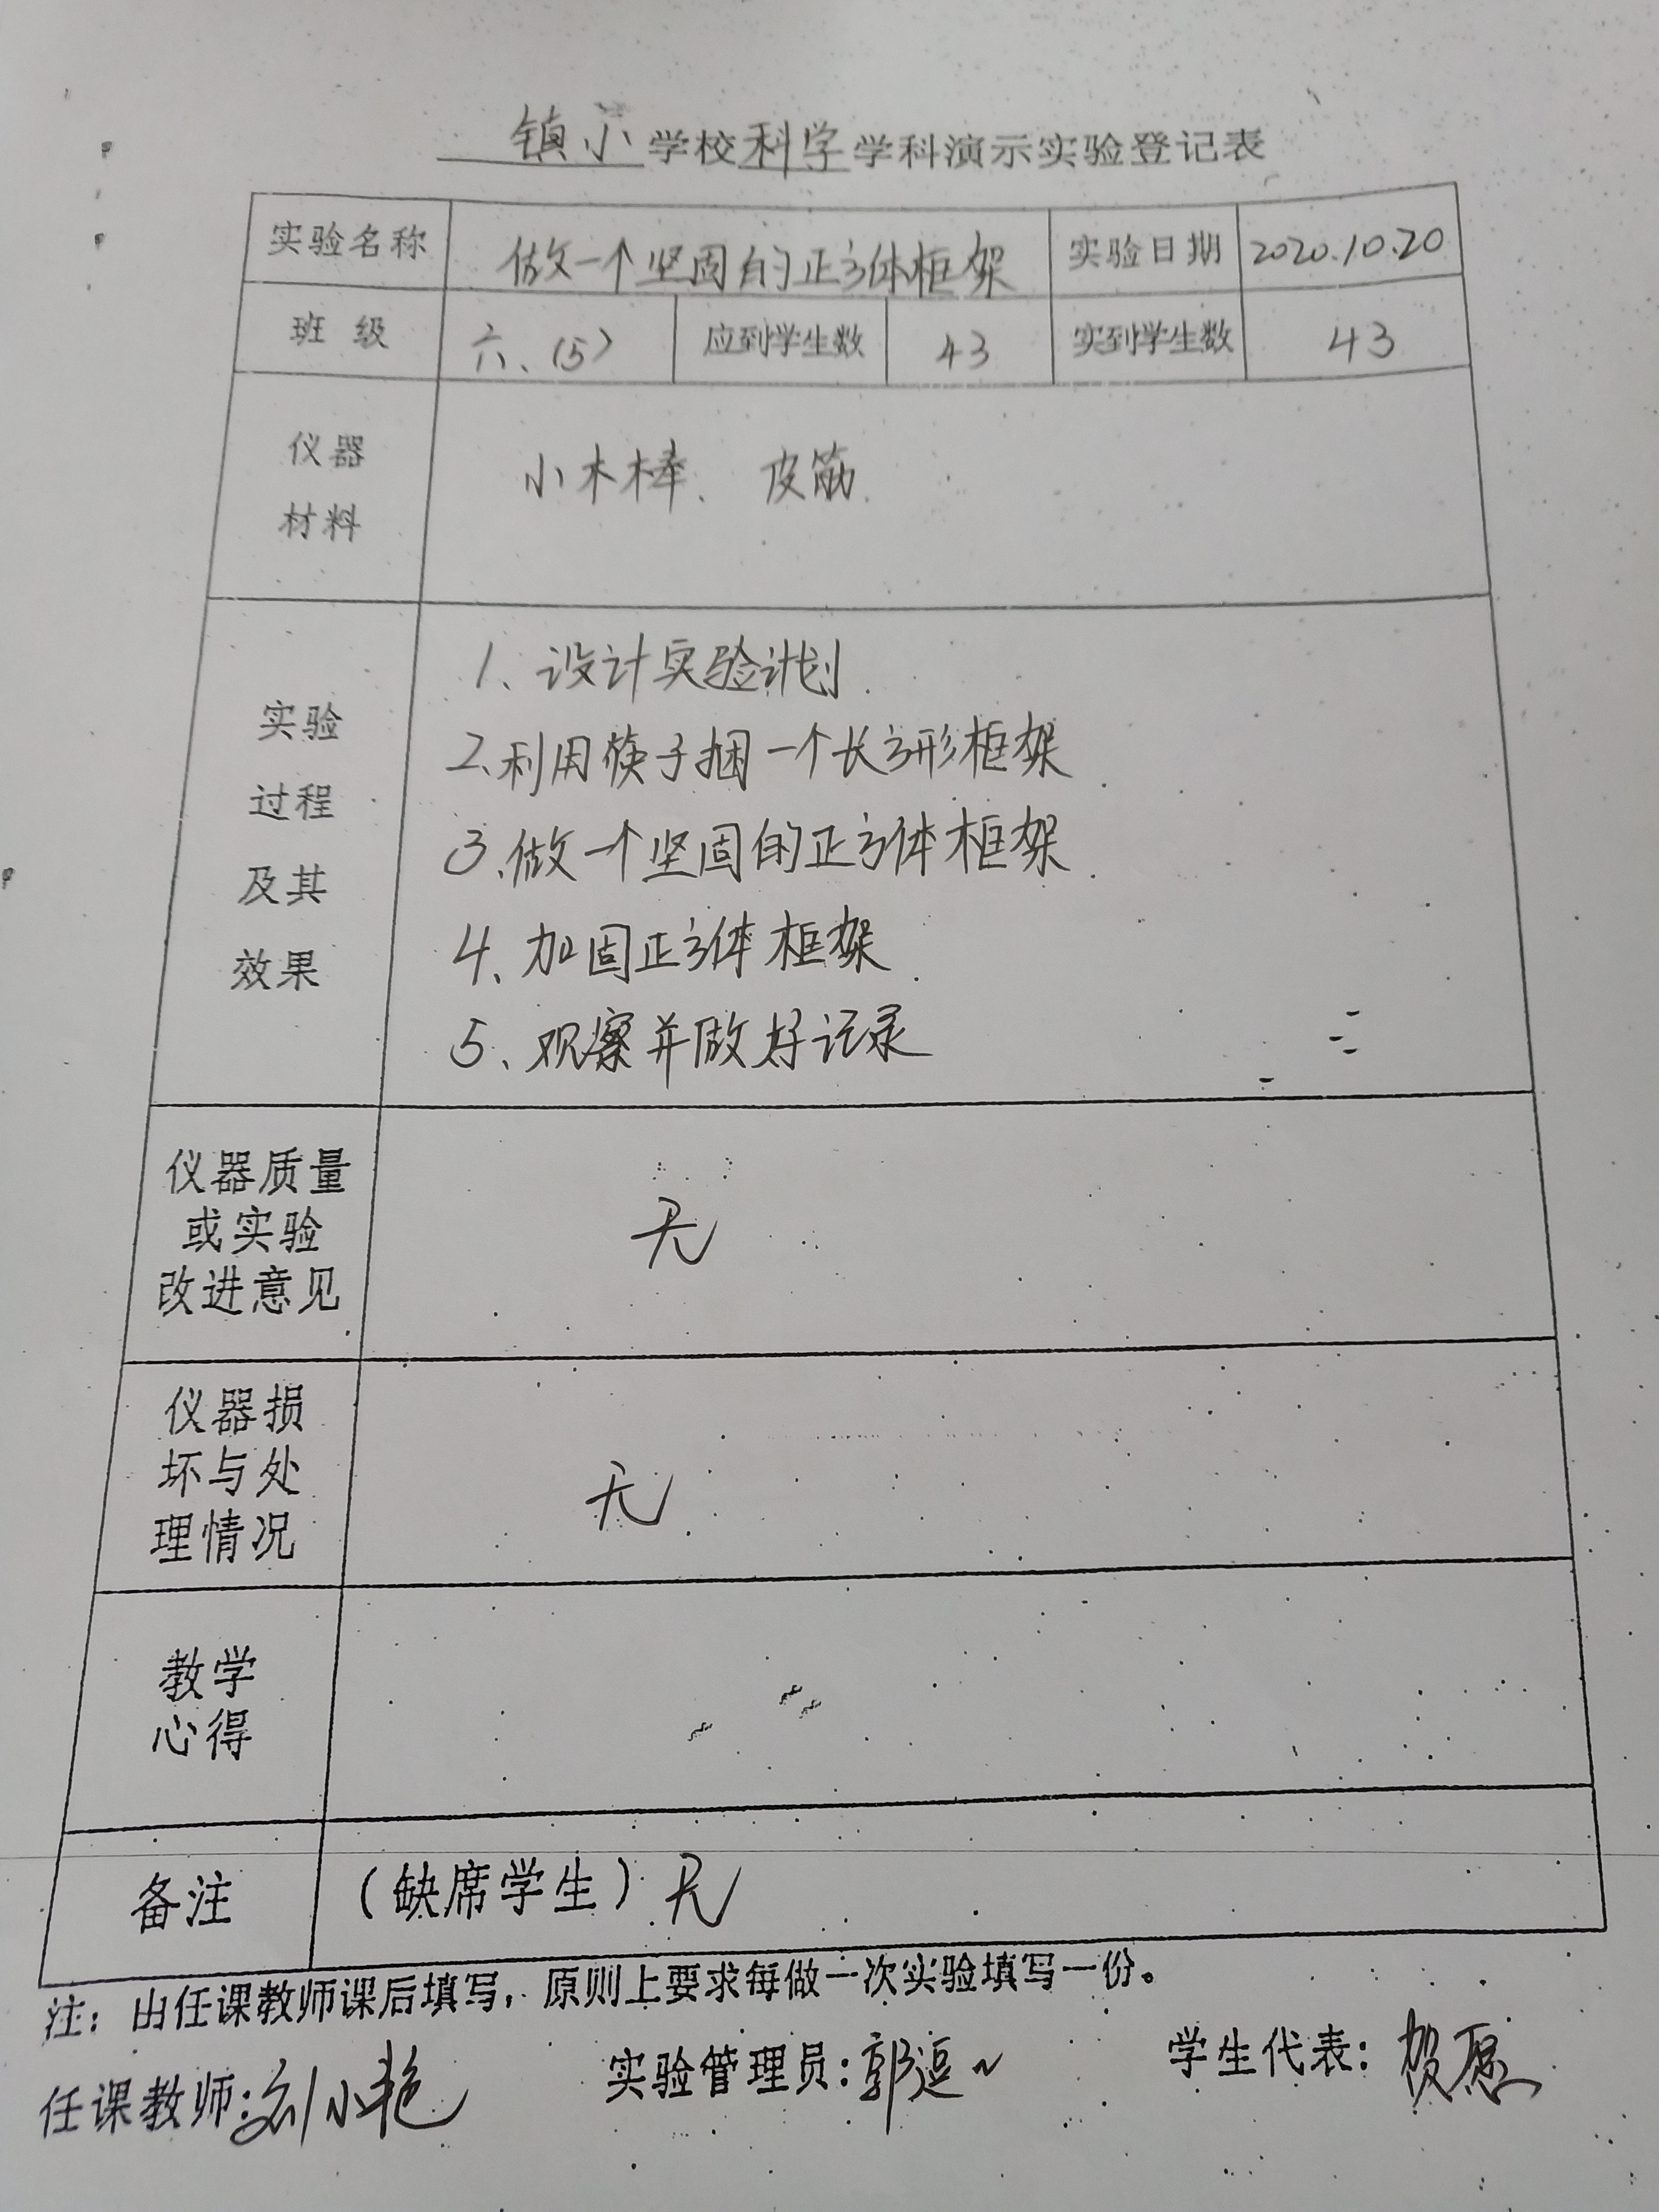 镇小学校科学学科演示实验登记表
实验名称 做一个坚固的正方体框架 实验日期 2020.10.20
班级 六、(5) 应到学生数 43 实到学生数 43
仪器
材料
小木棒、皮筋
实验
过程
及其
效果
1、设计实验计划
2、利用筷子捆一个长方形框架
3、做一个坚固的正方体框架
4、加固正方体框架
5、观察并做好记录
仪器质量
或实验
改进意见
无
仪器损
坏与处
理情况
无
教学
心得
备注 (缺席学生) 无
注：由任课教师课后填写，原则上要求每做一次实验填写一份。
任课教师：刘小艳 实验管理员：郭 学生代表：